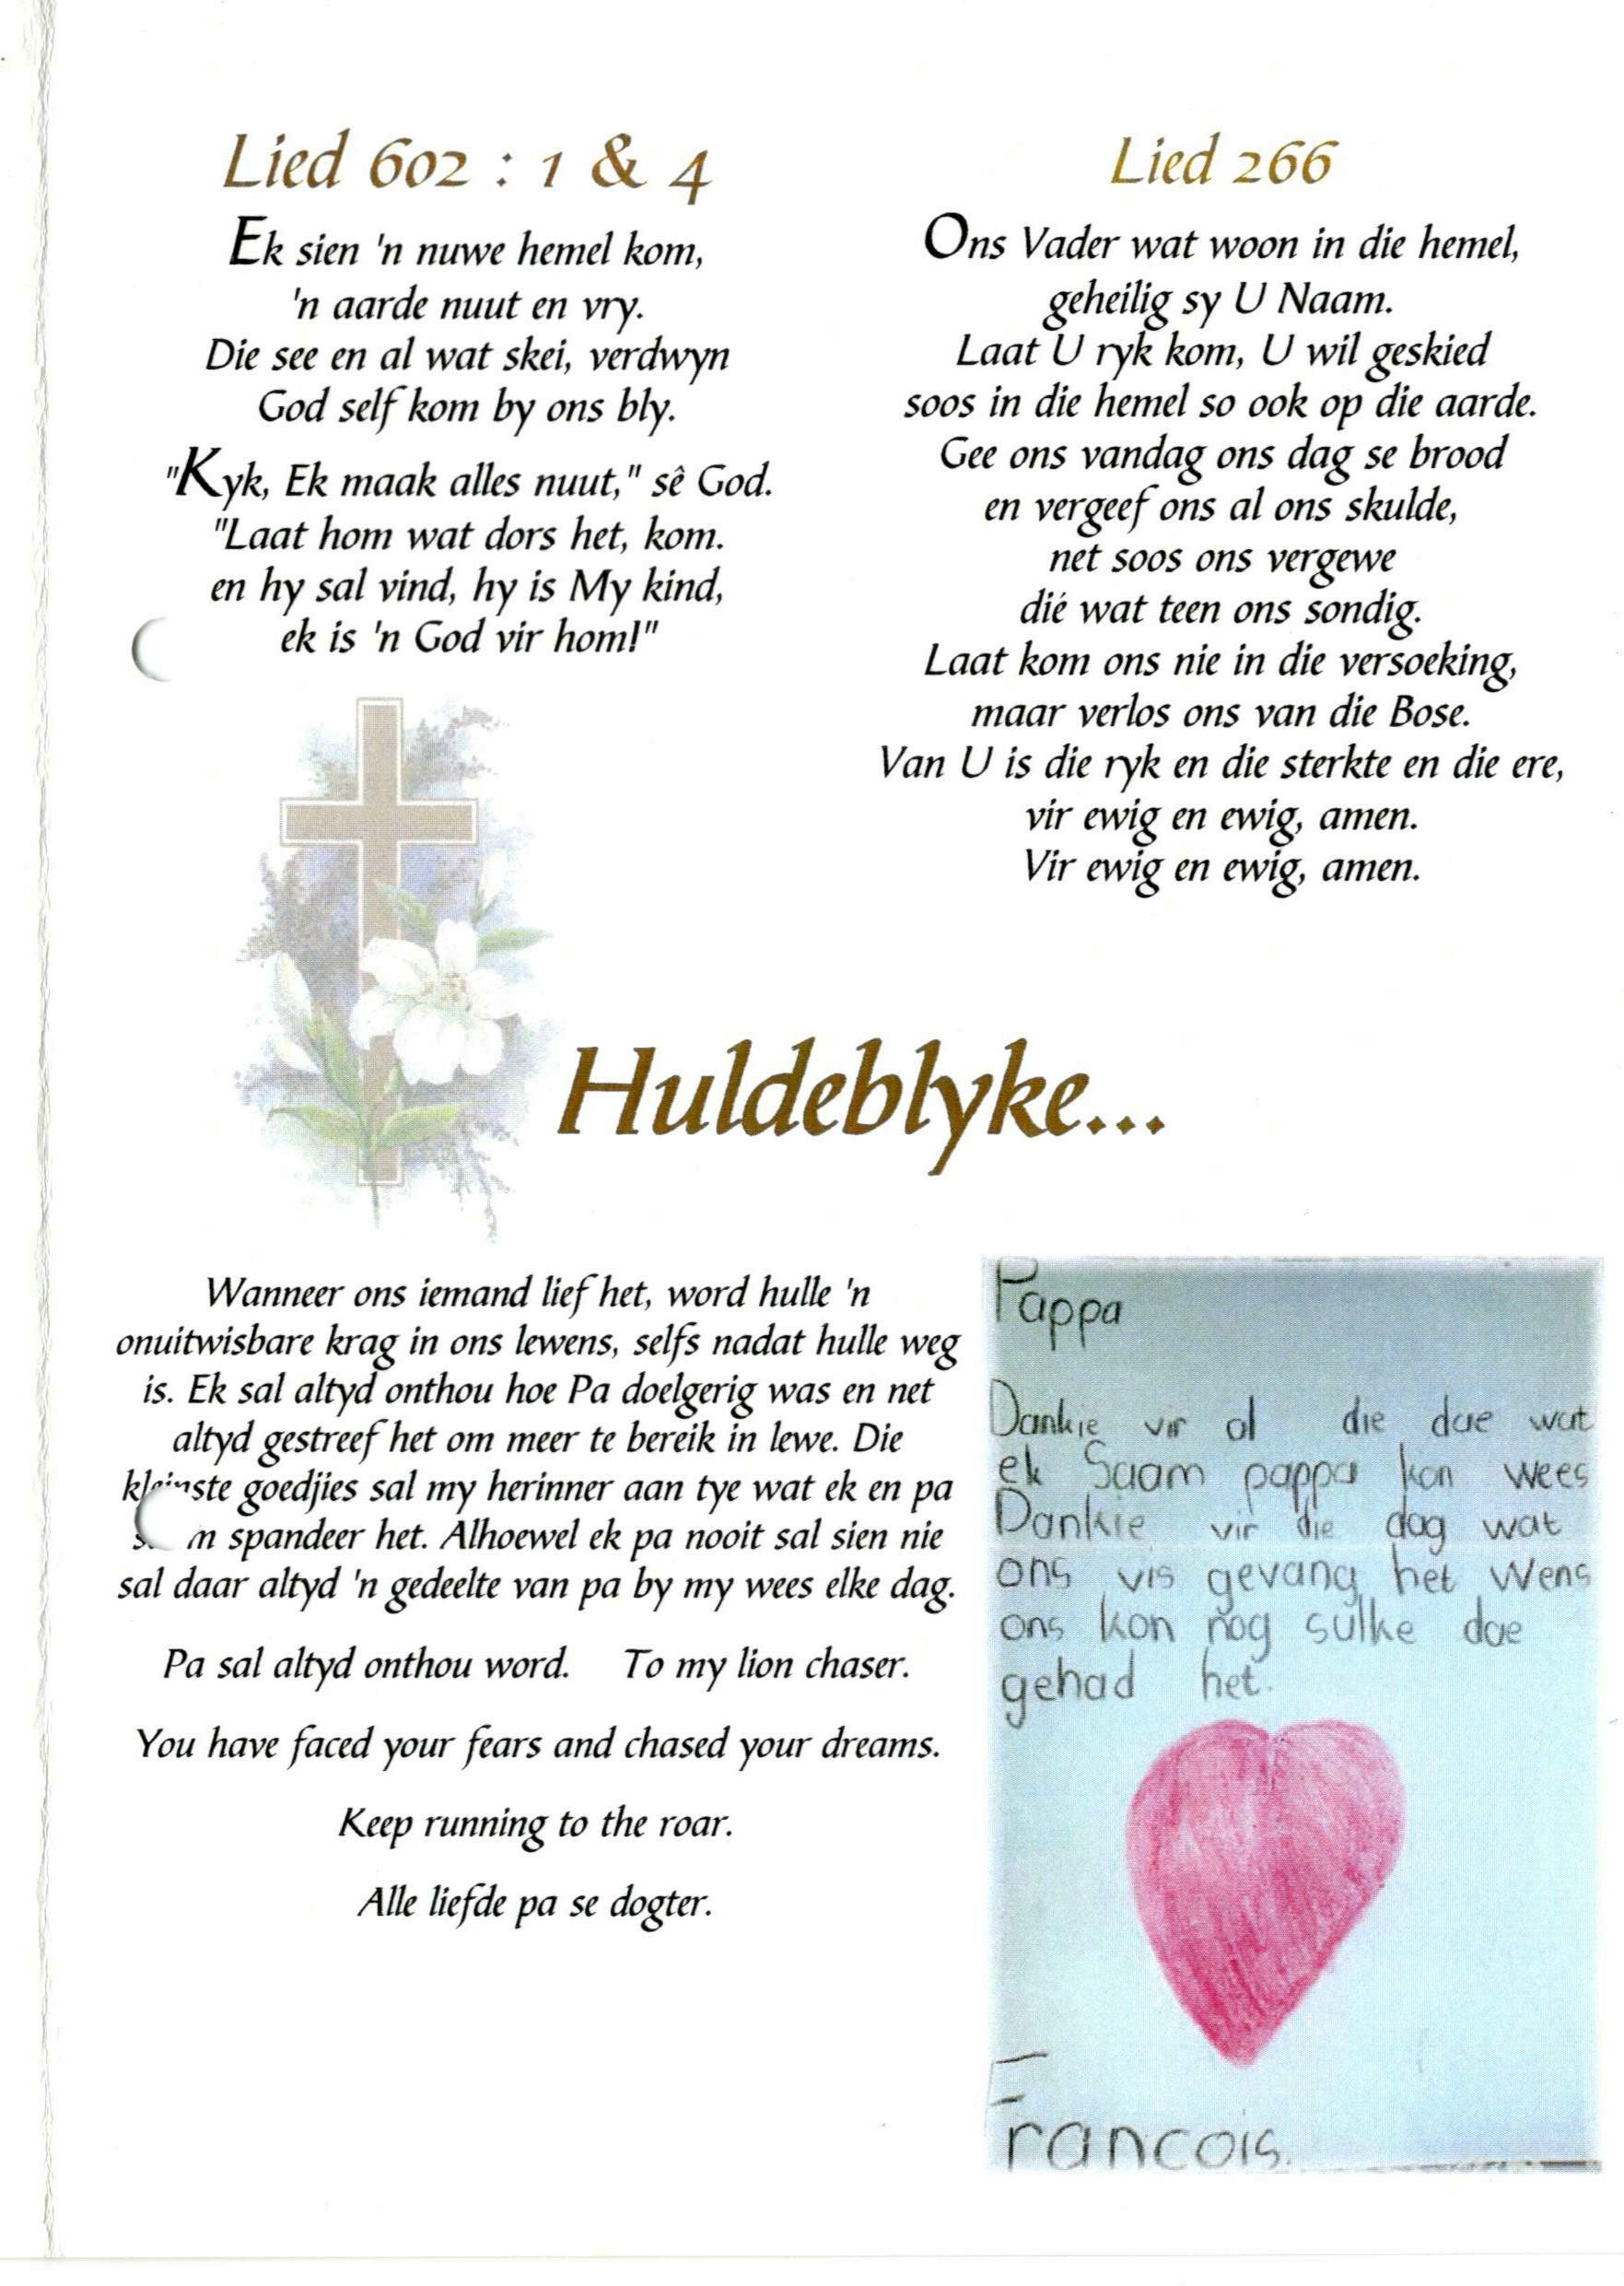 Lied 602 : 1 & 4
Ek sien 'n nuwe hemel kom,
'n aarde nuut en vry.
Die see en al wat skei, verdwyn
God self kom by ons bly.
"Kyk, Ek maak alles nuut," sê God.
"Laat hom wat dors het, kom.
en hy sal vind, hy is My kind,
ek is 'n God vir hom!"
Lied 266
Ons Vader wat woon in die hemel,
geheilig sy U Naam.
Laat U ryk kom, U wil geskied
soos in die hemel so ook op die aarde.
Gee ons vandag ons dag se brood
en vergeef ons al ons skulde,
net soos ons vergewe
dié wat teen ons sondig.
Laat kom ons nie in die versoeking,
maar verlos ons van die Bose.
Van U is die ryk en die sterkte en die ere,
vir ewig en ewig, amen.
Vir ewig en ewig, amen.
Huldeblyke...
Wanneer ons iemand lief het, word hulle 'n
onuitwisbare krag in ons lewens, selfs nadat hulle weg
is. Ek sal altyd onthou hoe Pa doelgerig was en net
altyd gestreef het om meer te bereik in lewe. Die
kleinste goedjies sal my herinner aan tye wat ek en pa
spandeer het. Alhoewel ek pa nooit sal sien nie
sal daar altyd 'n gedeelte van pa by my wees elke dag.
Pa sal altyd onthou word. To my lion chaser.
You have faced your fears and chased your dreams.
Keep running to the roar.
Alle liefde pa se dogter.
Pappa
Dankie vir al die dae wat
ek Saam pappa kon wees
Dankie vir die dag wat
ons vis gevang het Wens
ons kon nog sulke dae
gehad het.
Francois.